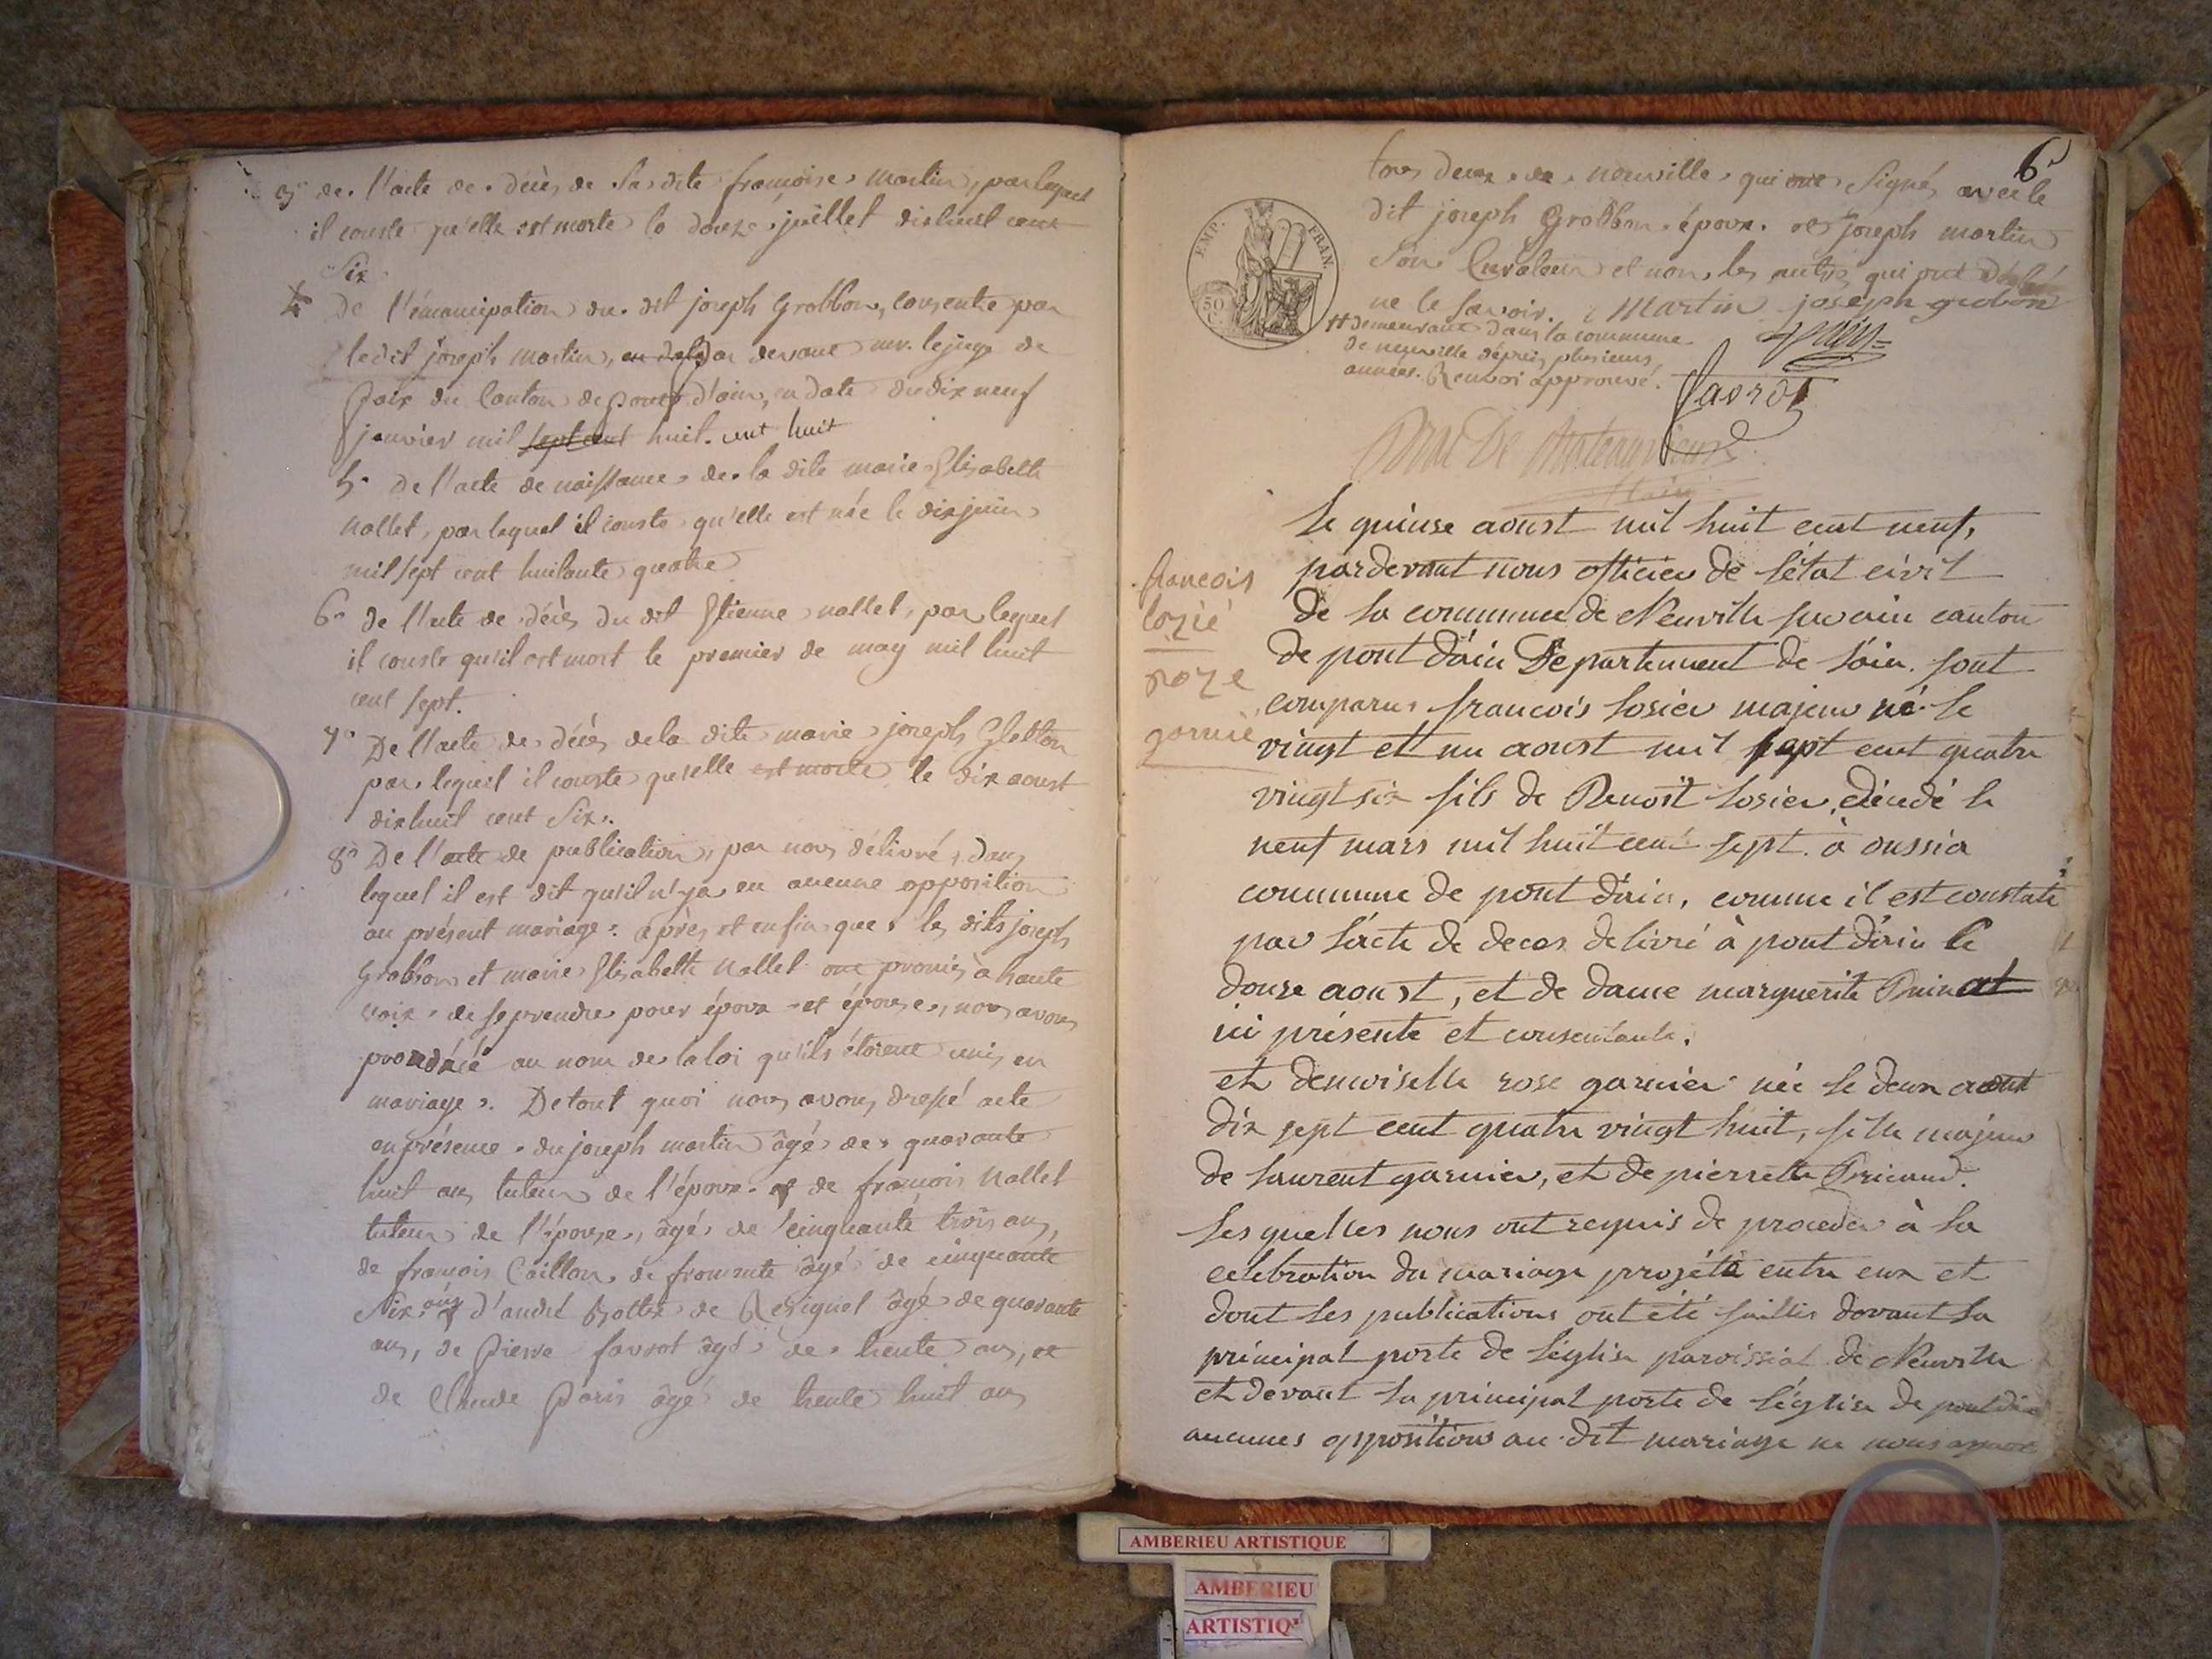 3° de l'acte de décès de la dite françoise martin, par lequel
il conste qu'elle est morte le douze juillet dixhuit cent
Six
4 De l'émancipation du dit joseph Grobbon, consentie par
le dit joseph martin, par devant mr. le juge de
Paix du Canton de pont d'ain, en date du dix neuf
janvier mil sept cent huit cent huit
5° De l'acte de naissance de la dite marie Elisabeth
Nallet, par lequel il conste qu'elle est née le dix juin
mil sept cent huitante quatre
6° de l'acte de décès du dit Etienne nallet, par lequel
il conste qu'il est mort le premier de may mil huit
cent sept.
7° De l'acte de décès de la dite marie joseph
par lequel il conste qu'elle est morte le dix aoust
dixhuit cent Six.
8° De l'acte de publication, par nous délivré, dans
lequel il est dit qu'il n'y a eu aucune opposition
au présent mariage: après et enfin que les dits joseph
Grobbon et marie Elisabeth Nallet ont promis à haute
voix de se prendre pour époux et épouse, nous avons
prononcé au nom de la loi qu'ils étoient unis en
mariage. De tout quoi nous avons dressé acte
en présence du joseph martin âgé de quarante
huit ans tuteur de l'époux & de françois Nallet
tuteur de l'épouse, âgé de cinquante trois ans,
de françois Caillon de fromente âgé de cinquante
Six ans & d'andré de Resignel âgé de quarante
ans, de Pierre favrot âgé de trente ans, et
de Claude Paris âgé de trente huit ans
6
tous deux de neuville qui ont Signé avec le
dit joseph Grobbon époux et joseph martin
Son Curateur et non les autres qui ont déclaré
ne le Savoir. Martin joseph grobon
EMP. FRAN.
50 C
++ demeurant dans la commune
de neuville depuis plusieurs
années. Renvoi approuvé.
Paris
favrot
maire
françois
lozié
roze
garnié
Le quinse aoust mil huit cent neuf,
pardevant nous officier de l'état civil
de la commune de Neuville sur ain canton
de pont d'ain Departement de l'ain. sont
comparus francois losier majeur né le
vingt et un aoust mil sept cent quatre
vingt six fils de Benoit losier, décedé le
neuf mars mil huit cent sept à oussia
commune de pont d'ain, comme il est constaté
par l'acte de deces delivré à pont d'ain le
douze aoust, et de dame marguerite
ici présente et consentante.
et demoiselle rose garnier née le deux aoust
dix sept cent quatre vingt huit, fille majeur
de laurent garnier, et de pierrette Bricand.
Les quelles nous ont requis de proceder à la
celebration du mariage projeté entre eux et
dont les publications ont été faittes devant la
principal porte de l'église paroissial de Neuville
et devant la principal porte de l'église de pont d'ain
aucunes oppositions au dit mariage ne nous ayant
AMBERIEU ARTISTIQUE
AMBERIEU
ARTISTIQ